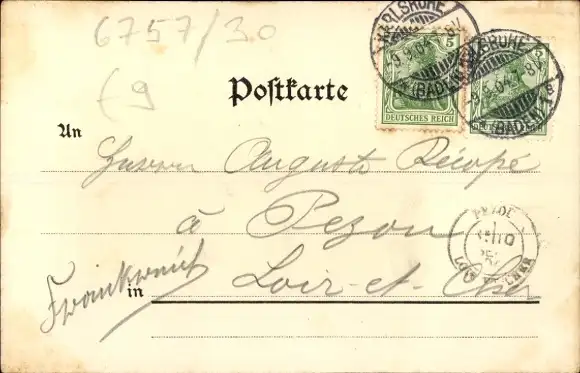 6757/30
€9
Postkarte
KARLSRUHE
(BADEN)
5
DEUTSCHES REICH
KARLSRUHE
(BADEN) 1a
5
DEUTSCHES REICH
An
Herrn Auguste Récopé
à Pezou
PEZOU
LOIR-ET-CHER
Frankreich
in Loir-et-Cher